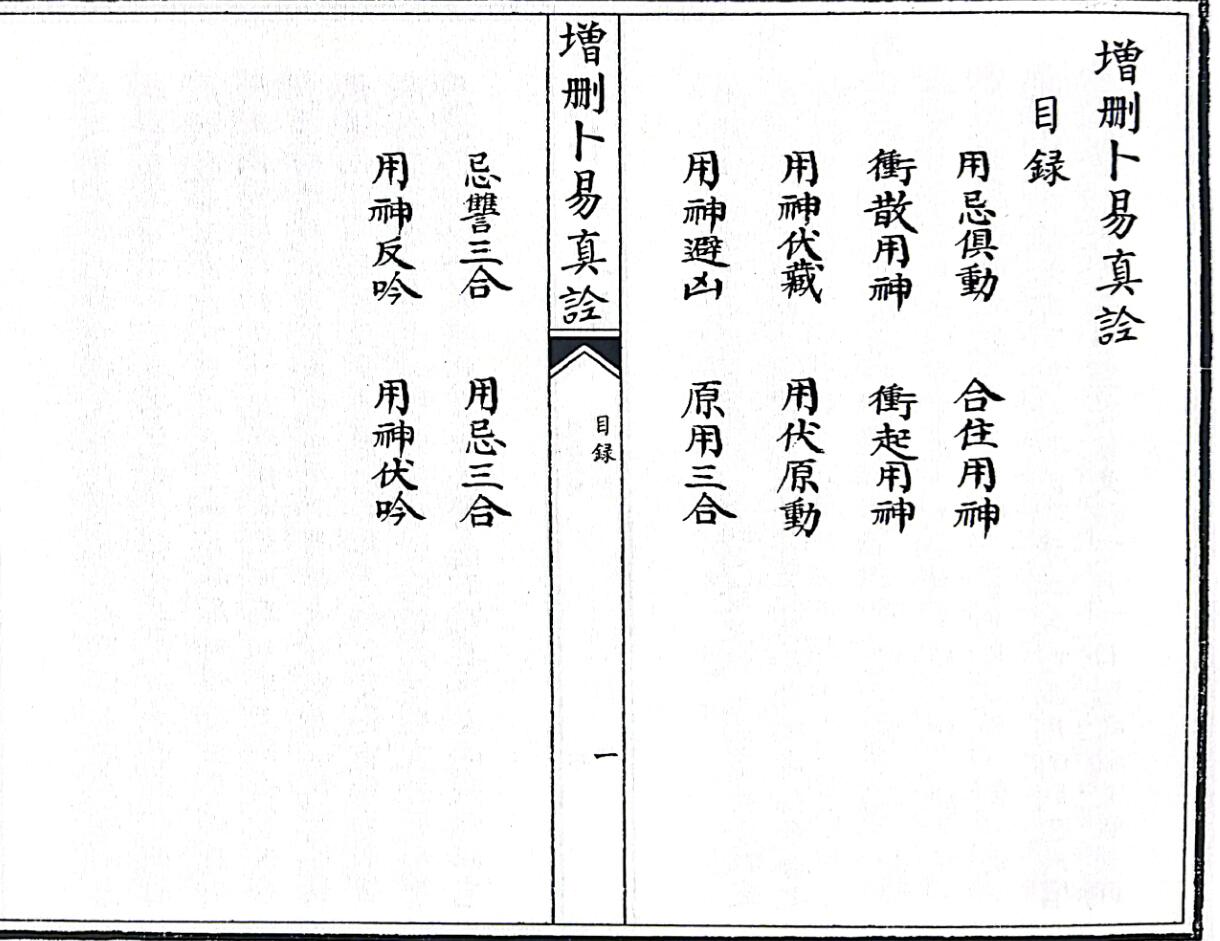 增刪卜易真詮
目録
用忌俱動　合住用神
衝散用神　衝起用神
用神伏藏　用伏原動
用神避凶　原用三合
增刪卜易真詮
目録
一
忌讐三合　用忌三合
用神反吟　用神伏吟